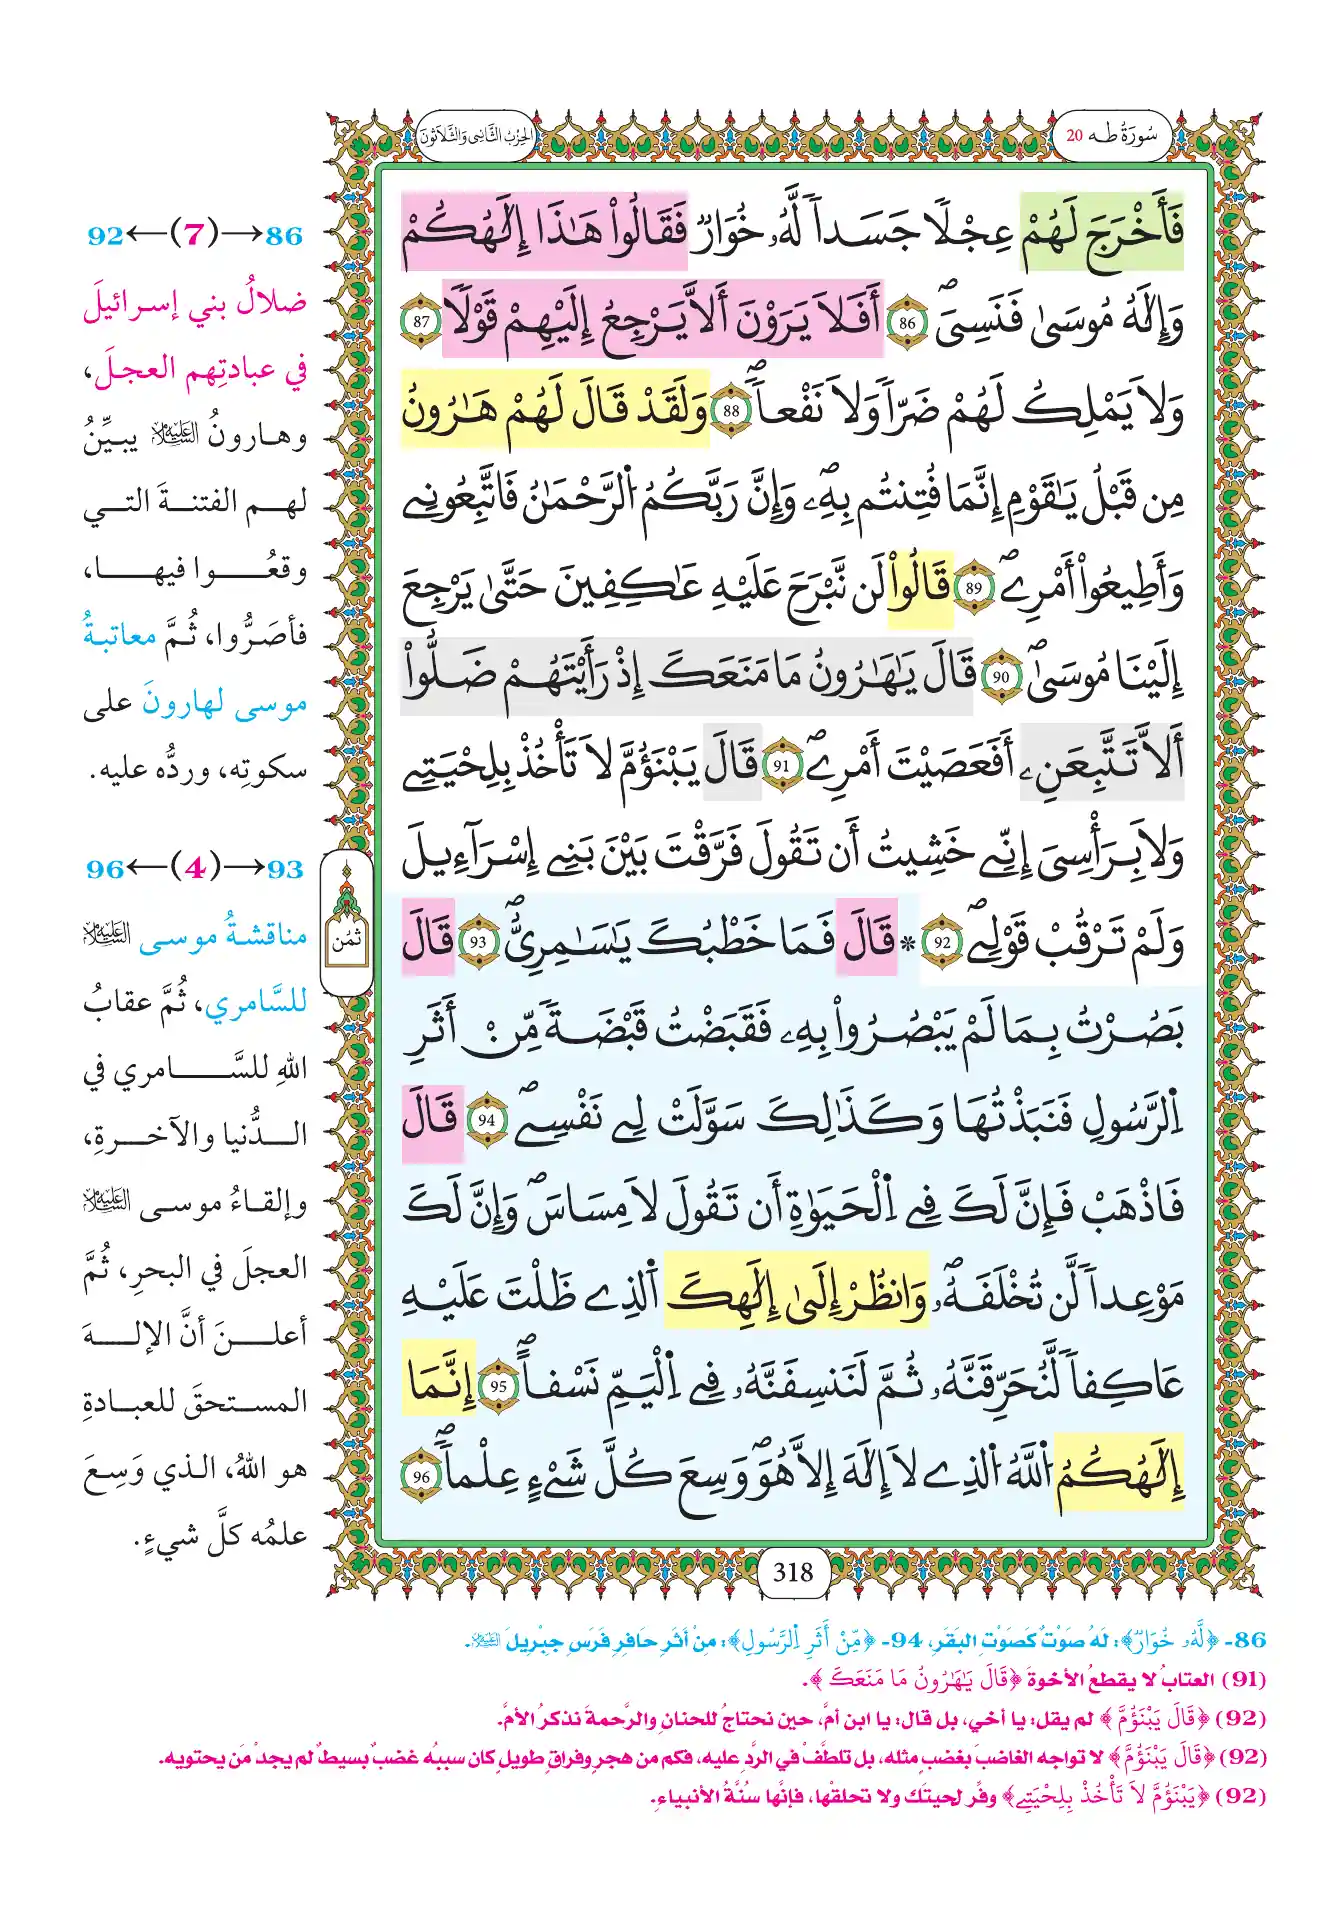 سُورَةُ طه 20
الحِزْبُ الثَّانِي وَالثَّلَاثُونَ
فَأَخْرَجَ لَهُمْ عِجْلًا جَسَداً لَّهُۥ خُوَارٌ فَقَالُواْ هَٰذَا إِلَٰهُكُمْ
وَإِلَٰهُ مُوسَىٰ فَنَسِيَۖ 86 أَفَلَا يَرَوْنَ أَلَّا يَرْجِعُ إِلَيْهِمْ قَوْلًا 87
وَلَا يَمْلِكُ لَهُمْ ضَرّاً وَلَا نَفْعاًۖ 88 وَلَقَدْ قَالَ لَهُمْ هَٰرُونُ
مِن قَبْلُ يَٰقَوْمِ إِنَّمَا فُتِنتُم بِهِۦۖ وَإِنَّ رَبَّكُمُ اُ۬لرَّحْمَٰنُ فَاتَّبِعُونِے
وَأَطِيعُواْ أَمْرِےۖ 89 قَالُواْ لَن نَّبْرَحَ عَلَيْهِ عَٰكِفِينَ حَتَّىٰ يَرْجِعَ
إِلَيْنَا مُوسَىٰۖ 90 قَالَ يَٰهَٰرُونُ مَا مَنَعَكَ إِذْ رَأَيْتَهُمْ ضَلُّواْ
أَلَّا تَتَّبِعَنِۦ أَفَعَصَيْتَ أَمْرِےۖ 91 قَالَ يَبْنَؤُمَّ لَا تَأْخُذْ بِلِحْيَتِے
وَلَا بِرَأْسِيَ إِنِّے خَشِيتُ أَن تَقُولَ فَرَّقْتَ بَيْنَ بَنِے إِسْرَآءِيلَ
وَلَمْ تَرْقُبْ قَوْلِےۖ 92 * قَالَ فَمَا خَطْبُكَ يَٰسَٰمِرِيُّۖ 93 قَالَ
ثُمُن
بَصُرْتُ بِمَا لَمْ يَبْصُرُواْ بِهِۦ فَقَبَضْتُ قَبْضَةً مِّنْ أَثَرِ
اِ۬لرَّسُولِ فَنَبَذْتُهَا وَكَذَٰلِكَ سَوَّلَتْ لِے نَفْسِےۖ 94 قَالَ
فَاذْهَبْ فَإِنَّ لَكَ فِے اِ۬لْحَيَوٰةِ أَن تَقُولَ لَا مِسَاسَۖ وَإِنَّ لَكَ
مَوْعِداً لَّن تُخْلَفَهُۥۖ وَانظُرْ إِلَىٰ إِلَٰهِكَ اَ۬لذِے ظَلْتَ عَلَيْهِ
عَاكِفاً لَّنُحَرِّقَنَّهُۥ ثُمَّ لَنَنسِفَنَّهُۥ فِے اِ۬لْيَمِّ نَسْفاًۖ 95 إِنَّمَا
إِلَٰهُكُمُ اُ۬للَّهُ اُ۬لذِے لَا إِلَٰهَ إِلَّا هُوَۖ وَسِعَ كُلَّ شَےْءٍ عِلْماًۖ 96
318
86→(7)←92
ضلالُ بني إسرائيلَ
في عبادتِهم العجلَ،
وهارونُ عليه السلام يبيِّنُ
لهم الفتنةَ التي
وقعُوا فيها،
فأصَرُّوا، ثُمَّ معاتبةُ
موسى لهارونَ على
سكوتِه، وردُّه عليه.
93→(4)←96
مناقشةُ موسى عليه السلام
للسَّامري، ثُمَّ عقابُ
اللهِ للسَّامري في
الدُّنيا والآخرةِ،
وإلقاءُ موسى عليه السلام
العجلَ في البحرِ، ثُمَّ
أعلنَ أنَّ الإلهَ
المستحقَ للعبادةِ
هو اللهُ، الذي وَسِعَ
علمُه كلَّ شيءٍ.
86- ﴿لَّهُۥ خُوَارٌ﴾: لَهُ صَوْتٌ كَصَوْتِ البَقَرِ، 94- ﴿مِّنْ أَثَرِ اِ۬لرَّسُولِ﴾: مِنْ أَثَرِ حَافِرِ فَرَسِ جِبْرِيلَ عليه السلام.
(91) العتابُ لا يقطعُ الأخوةَ ﴿قَالَ يَٰهَٰرُونُ مَا مَنَعَكَ﴾.
(92) ﴿قَالَ يَبْنَؤُمَّ﴾ لم يقل: يا أخي، بل قال: يا ابن أمَّ، حين نحتاجُ للحنانِ والرَّحمةِ نذكرُ الأمَّ.
(92) ﴿قَالَ يَبْنَؤُمَّ﴾ لا تواجه الغاضبَ بغضبٍ مثله، بل تلطَّفْ في الرَّدِ عليه، فكم من هجرٍ وفراقٍ طويلٍ كان سببُه غضبٌ بسيطٌ لم يجدْ مَن يحتويه.
(92) ﴿يَبْنَؤُمَّ لَا تَأْخُذْ بِلِحْيَتِے﴾ وفِّر لحيتَك ولا تحلقْها، فإنَّها سُنَّةُ الأنبياءِ.